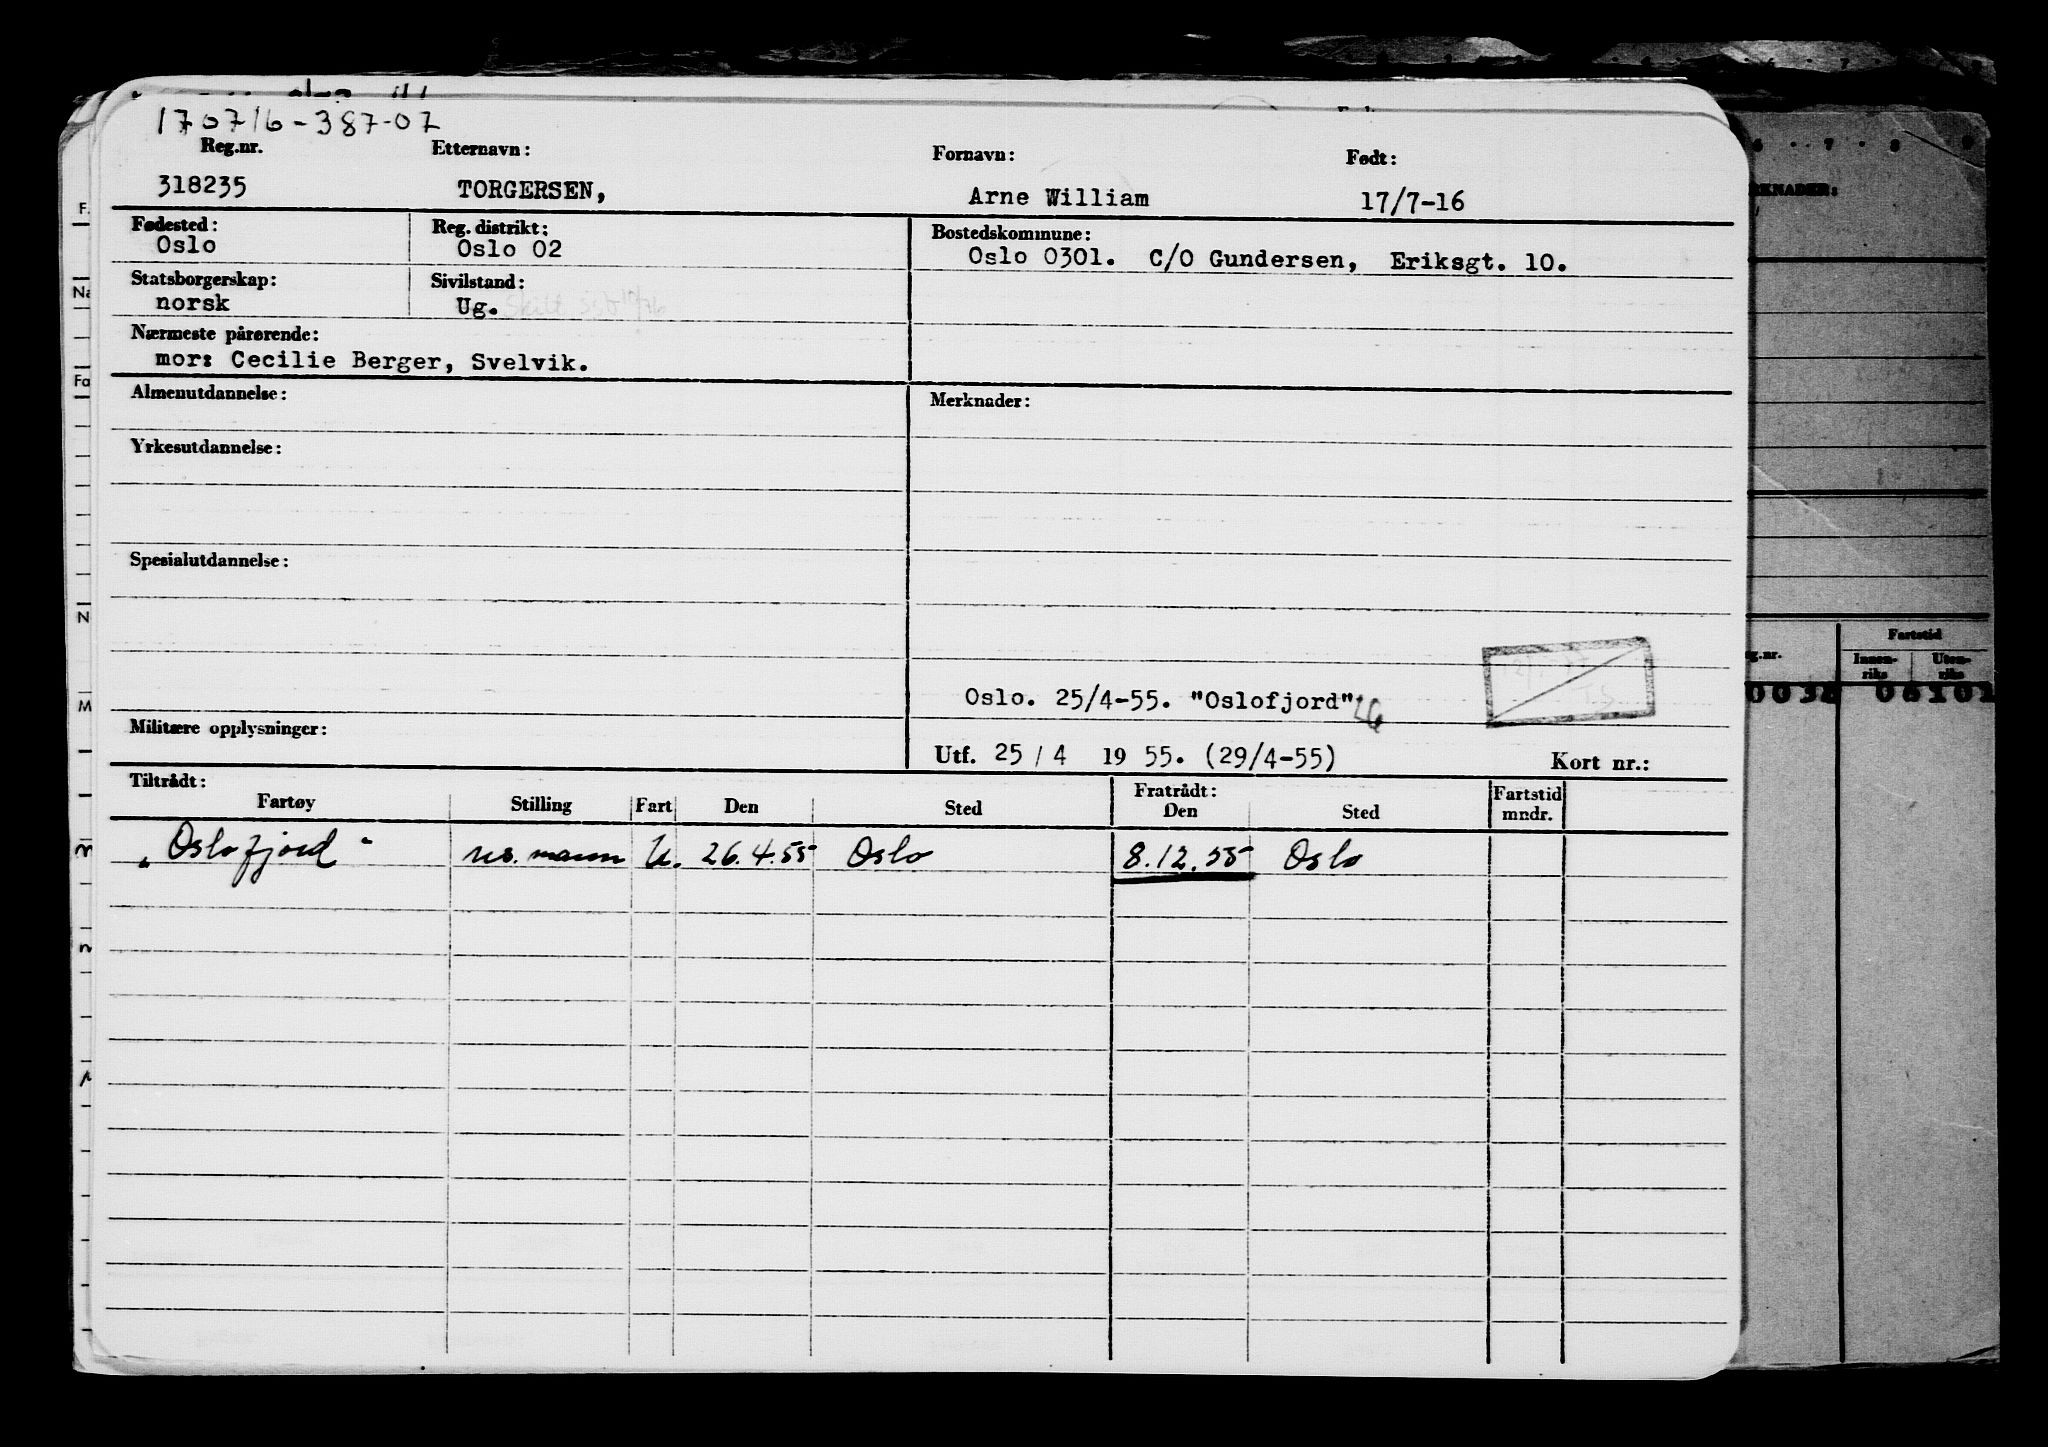 170716-387-07
Reg.nr. Etternavn: Fornavn: Født:
318235 TORGERSEN, Arne William 17/7-16
Fødested: Reg. distrikt: Bostedskommune:
Oslo Oslo 02 Oslo 0301. C/O Gundersen, Eriksgt. 10.
Statsborgerskap: Sivilstand:
norsk Ug. Skilt
Nærmeste pårørende:
mor: Cecilie Berger, Svelvik.
Almenutdannelse: Merknader:
Yrkesutdannelse:
Spesialutdannelse:
Oslo. 25/4-55. "Oslofjord"
Militære opplysninger:
Utf. 25 / 4 19 55. (29/4-55) Kort nr.:
Tiltrådt: Fratrådt: Fartstid
Fartøy Stilling Fart Den Sted Den Sted mndr.
"Oslofjord" res. mann U. 26.4.55 Oslo 8.12.55 Oslo
6 7 8 9
RKNADER:
Fartstid
g.nr. Innen-riks Uten-riks
0038 06101
F.
Na
Fa
N
M